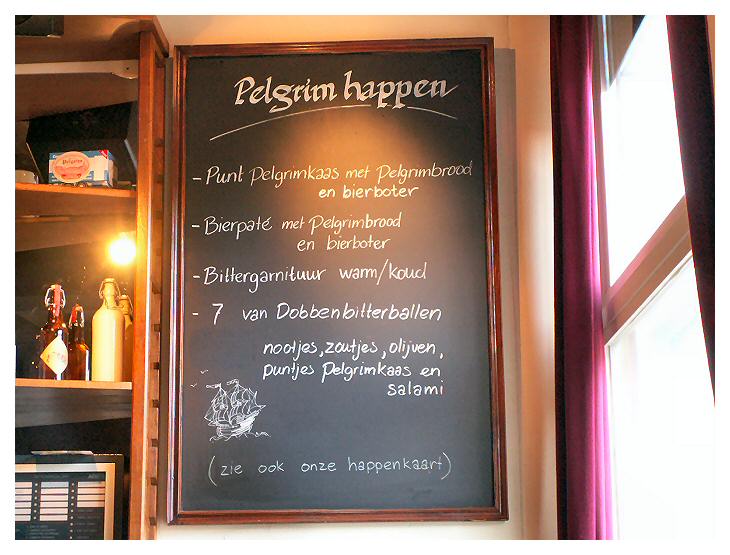 Pelgrim happen
- Punt Pelgrimkaas met Pelgrimbrood
en bierboter
- Bierpaté met Pelgrimbrood
en bierboter
- Bittergarnituur warm/koud
- 7 van Dobbenbitterballen
nootjes, zoutjes, olijven,
puntjes Pelgrimkaas en
salami
(zie ook onze happenkaart)